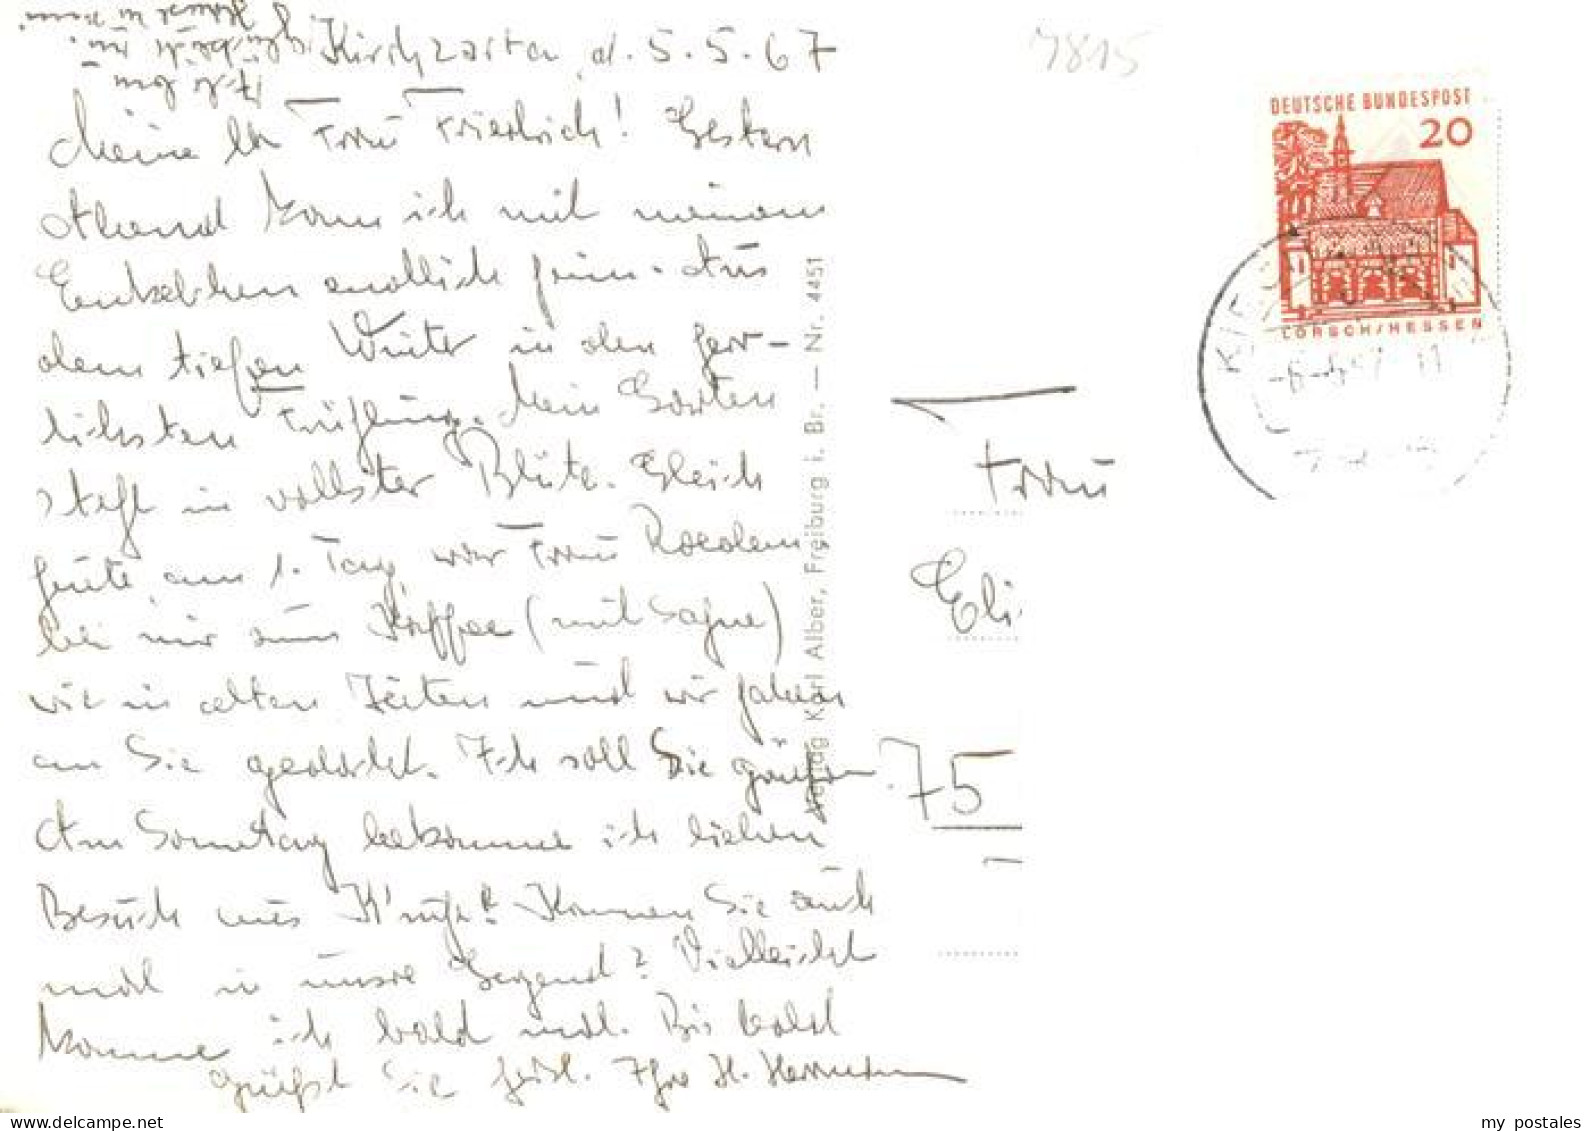 Kirchzarten, d. 5.5.67
7815
Meine lb Frau Friedrich! Gestern
Abend kam ich mit meinem
Enkelchen endlich heim. Aus
dem tiefen Winter in den herr-
lichsten Frühling. Mein Garten
steht in vollster Blüte. Gleich
heute, am 1. Tag, war Frau Roeden
bei mir zum Kaffee (mit Sahne)
wie in alten Zeiten und wir haben
an Sie gedacht. Ich soll Sie grüßen.
Am Sonntag bekomme ich lieben
Besuch aus
Kommen Sie auch
mal in unsre Gegend? Vielleicht
komme ich bald mal. Bis bald
grüßt Sie herzl. Ihre H. Herrmann
Verlag Karl Alber, Freiburg i. Br. — Nr. 4451
DEUTSCHE BUNDESPOST
20
LORSCH/HESSEN
Frau
Eli
75
my postales